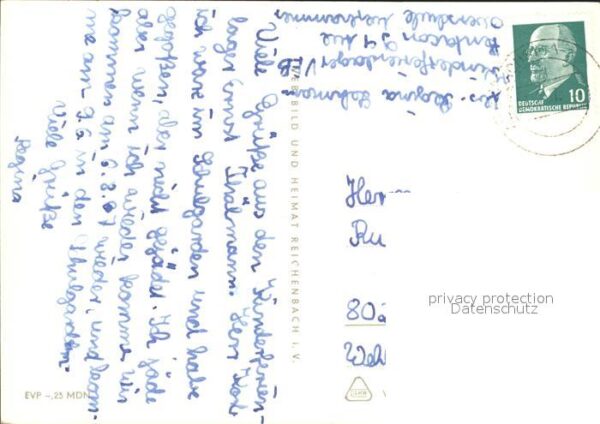 Viele Grüße aus den Kinderferien-
lager Ernst Thälmann. Herr
ich war im Schulgarten und habe
gegoßen, aber nicht gejätet. Ich jäte
aber wenn ich wieder komme. Wir
kommen am 6.8.67 wieder, und kom-
me am 9.8. in den Schulgarten.
Viele Grüße
Regina
Abs. Regina Lehmann
Kinderferienlager VEB
Pentacon
DEUTSCHE
DEMOKRATISCHE REPUBLIK 10
BILD UND HEIMAT REICHENBACH I. V.
Herr
Ru
80
EVP –,25 MDN
privacy protection
Datenschutz